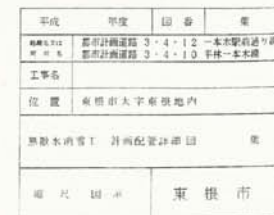 平成 年度 図番 葉
路線名又は 都市計画道路 3・4・12 一本木駅前通り線
河川名 都市計画道路 3・4・10 平林一本木線
工事名
位置 東根市大字東根地内
無散水消雪工 計画配管詳細図 葉
縮尺 図示 東根市